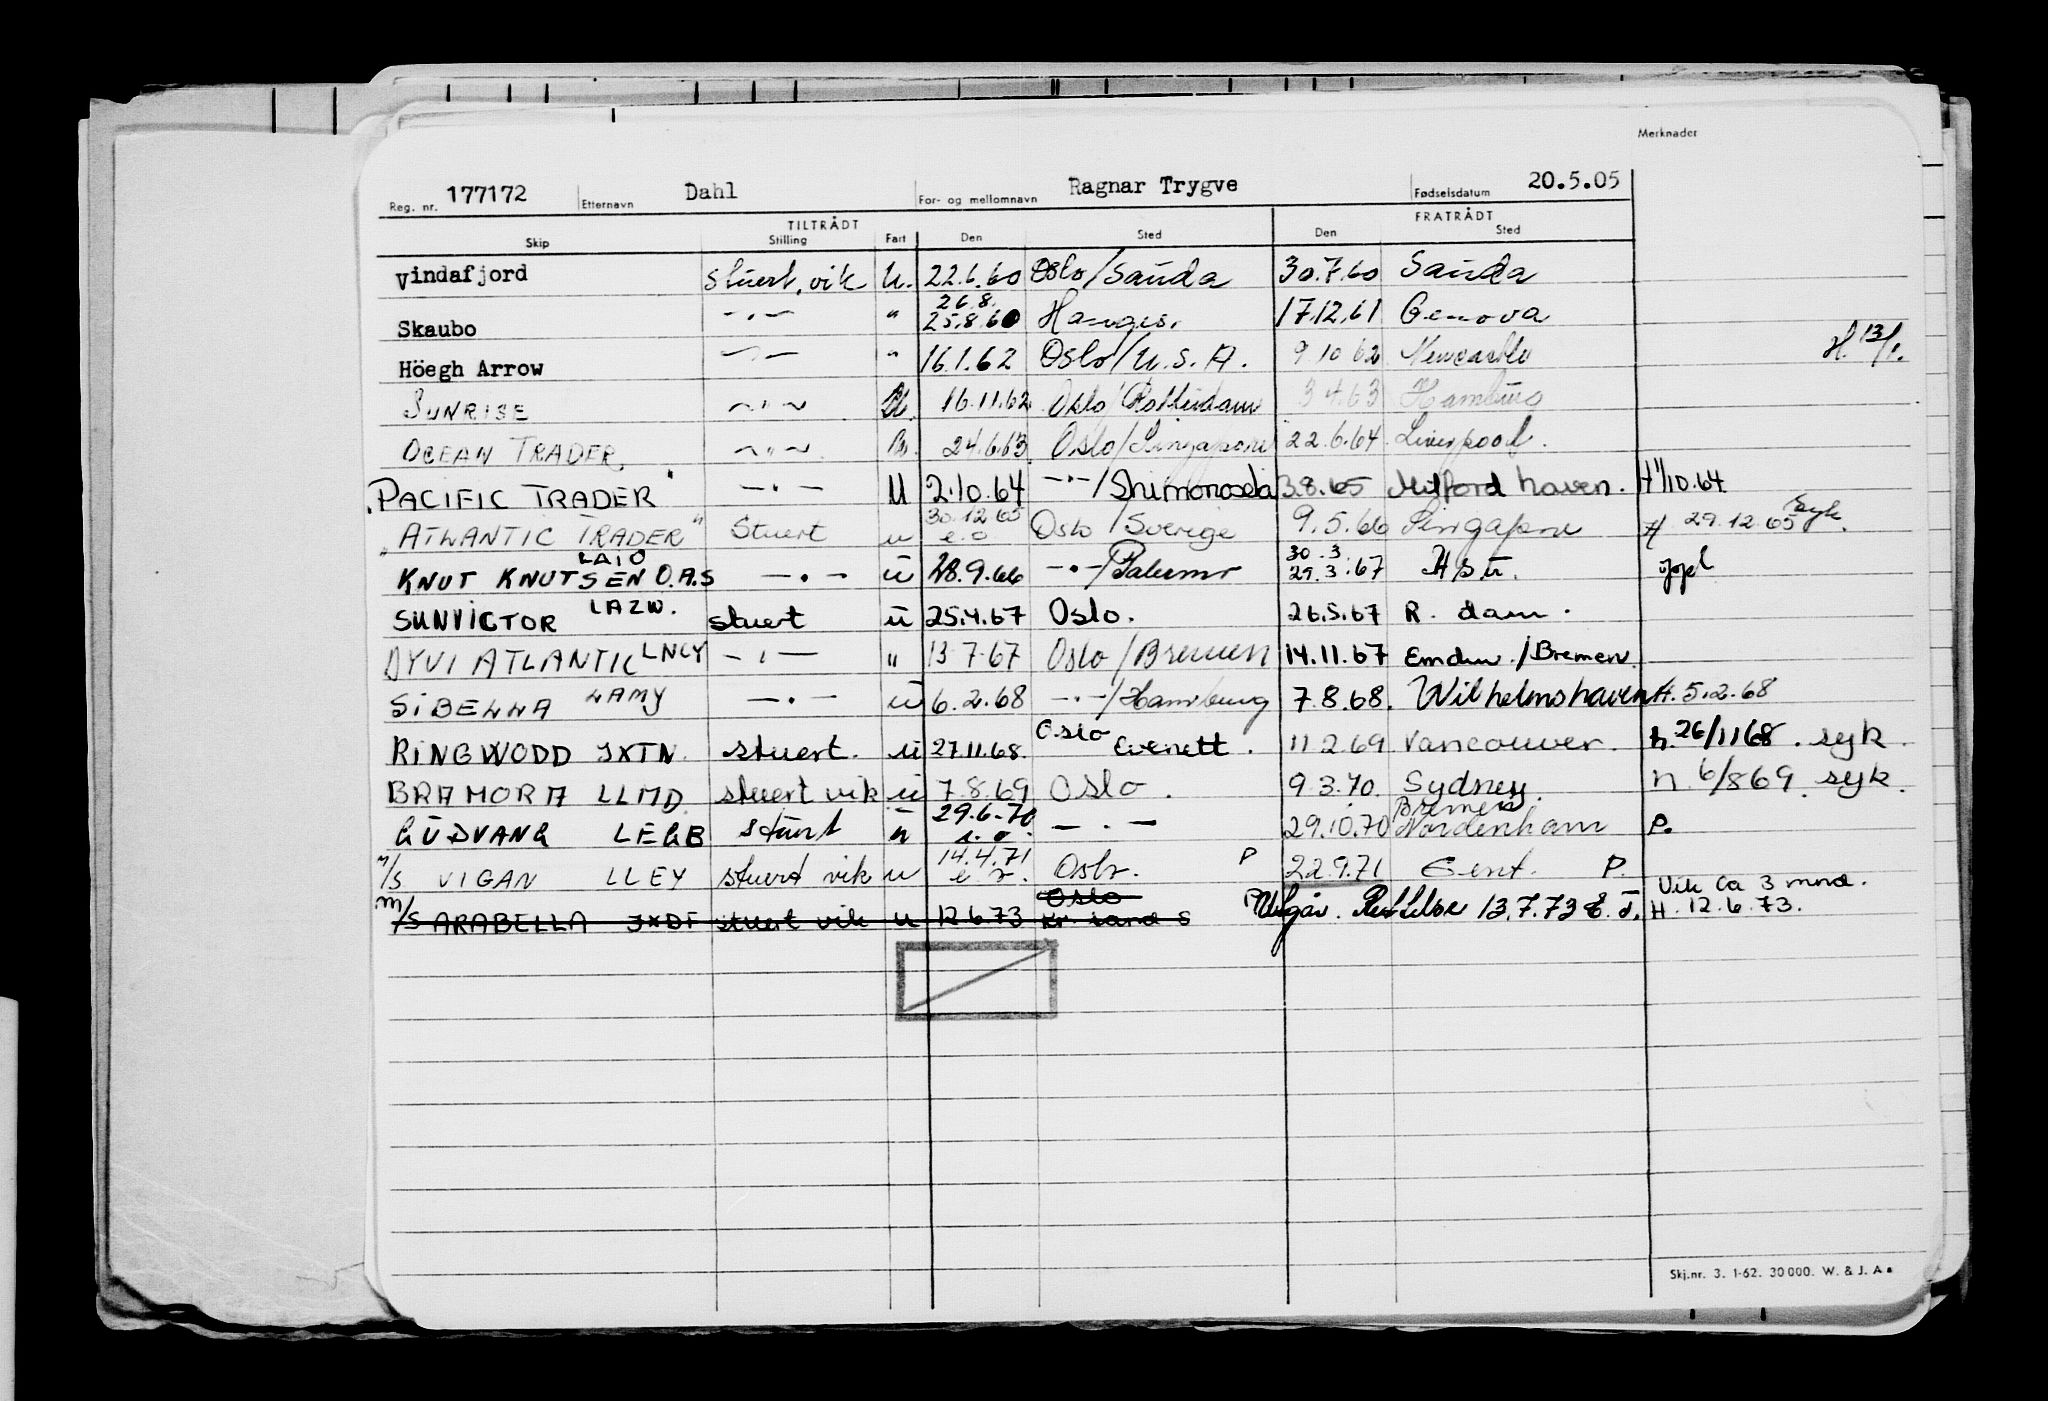 Merknader
Reg. nr. 177172 Etternavn Dahl For- og mellomnavn Ragnar Trygve Fødselsdatum 20.5.05
TILTRÅDT FRATRÅDT
Skip Stilling Fart Den Sted Den Sted
Vindafjord Stuert, vik U. 22.6.60 Oslo/Sauda 30.7.60 Sauda
26.8.
Skaubo —"— " 25.8.60 17.12.61 Genova
Höegh Arrow —"— " 16.1.62 Oslo/U.S.A. 9.10.62 Newcastle H. 13/1.
SUNRISE —"— U. 16.11.62 Oslo/Rotterdam 3.4.63 Hamburg
OCEAN TRADER —"— 24.6.63 Oslo/Singapore 22.6.64 Liverpool.
"PACIFIC TRADER" —"— U 2.10.64 —"—/Shimonoseki 3.8.65 Milford haven. H 1/10.64
"ATLANTIC TRADER" Stuert u 30.12.65 e.o Oslo/Sverige 9.5.66 Singapore H 29.12.65 syk.
LAIO 30.3.
KNUT KNUTSEN O.A.S —"— ü 28.9.66 —"—/Palermo 29.3.67
SUNVICTOR LAZW. stuert ü 25.4.67 Oslo. 26.5.67 R. dam.
DYVI ATLANTIC LNCY —"— " 13.7.67 Oslo/Bremen 14.11.67 Emden/Bremen.
SIBELLA LAMY —"— ü 6.2.68 —"—/Hamburg 7.8.68. Wilhelmshaven H. 5.2.68
RINGWOOD JXTN. stuert. ü 27.11.68. Oslo Everett. 11.2.69 Vancouver. h. 26/11 68. syk.
BRAMORA LLMD. stuert vik ü 7.8.69 Oslo. 9.3.70. Sydney. h 6/8 69. syk.
GUDVANG LEGB stuert ü 29.6.70 s.o. —"— 29.10.70 Bremen Nordenham P.
m/s VIGAN LLEY stuert vik u 14.4.71 Oslo. P 22.9.71 Gent. P.
Vik ca 3 mnd.
m/s ARABELLA JXDF stuert vik u 12.6.73 Oslo Kr. sand S Utgår. Rettelse 13.7.73 H. 12.6.73.
Skj.nr. 3. 1-62. 30000. W. & J. A s